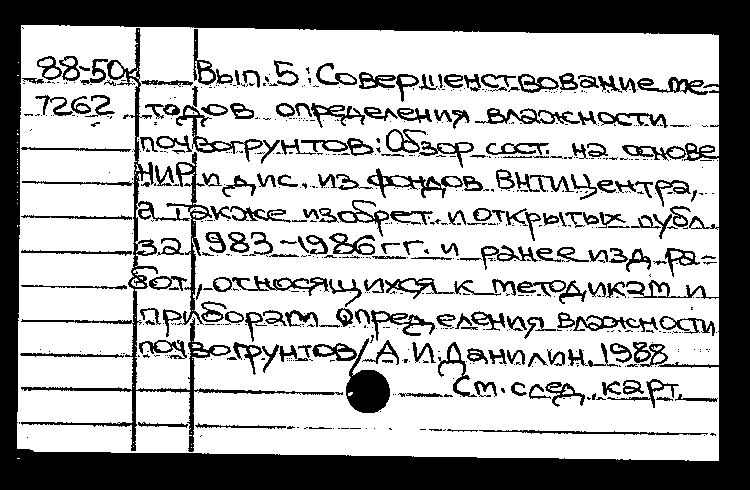 88-50к Вып. 5: Совершенствование ме=
7262 тодов определения влажности
почвогрунтов: Обзор сост. на основе
НИР и дис. из фондов ВНТИЦентра,
а также изобрет. и открытых публ.
за 1983-1986 гг. и ранее изд. ра=
бот, относящихся к методикам и
приборам определения влажности
почвогрунтов / А.И. Данилин, 1988
См. след. карт.